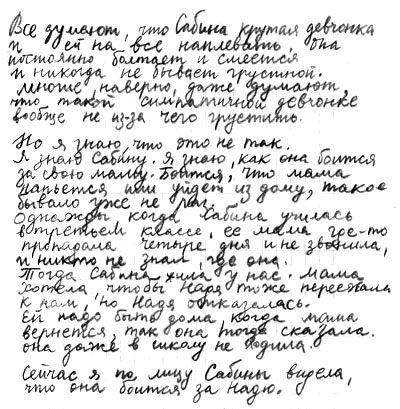 Все думают, что Сабина крутая девчонка
и ей на все наплевать, она
постоянно болтает и смеется
и никогда не бывает грустной.
Многие, наверно, даже думают,
что такой симпатичной девчонке
вообще не из-за чего грустить.
Но я знаю, что это не так.
Я знаю Сабину. Я знаю, как она боится
за свою маму. Боится, что мама
напьется или уйдет из дому, такое
бывало уже не раз.
Однажды, когда Сабина училась
в третьем классе, ее мама где-то
пропадала четыре дня и не звонила,
и никто не знал, где она.
Тогда Сабина жила у нас. Мама
хотела, чтобы Надя тоже переехала
к нам, но Надя отказалась.
Ей надо быть дома, когда мама
вернется, так она тогда сказала.
Она даже в школу не ходила.
Сейчас я по лицу Сабины видела,
что она боится за Надю.